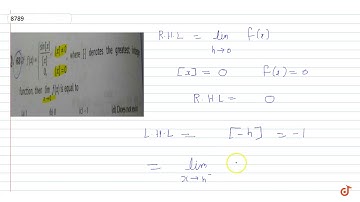 8789
f(x) = { sin[x]/[x], [x] ≠ 0
0, [x] = 0
, where [] denotes the greatest integer
function, then lim f(x) is equal to
(d) Does not exist
R.H.L = lim f(x)
h→0
[x] = 0 f(x) = 0
R.H.L = 0
L.H.L = [-h] = -1
= lim
x→h⁻
doubtnut